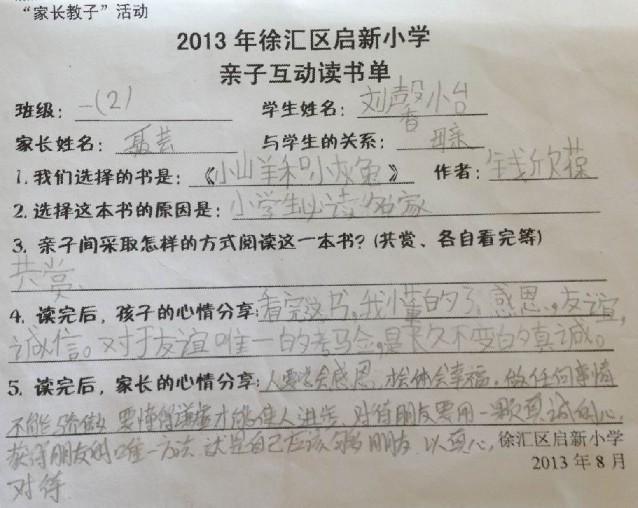 “家长教子”活动
2013年徐汇区启新小学
亲子互动读书单
班级：一(2) 学生姓名：刘馨小台
家长姓名：聂芸 与学生的关系：母亲
1. 我们选择的书是：《小山羊和小灰兔》 作者：钱欣葆
2. 选择这本书的原因是：小学生必读名家
3. 亲子间采取怎样的方式阅读这一本书？(共赏、各自看完等)
共赏、
4. 读完后，孩子的心情分享：看完这书，我懂的了感恩，友谊，
诚信。对于友谊唯一的考验，是长久不变的真诚。
5. 读完后，家长的心情分享：人要学会感恩，才会幸福，做任何事情
不能骄傲，要懂得谦虚才能使人进步，对待朋友要用一颗真诚的心，
获得朋友的唯一方法，就是自己应该 朋友，以真心，
对待
徐汇区启新小学
2013年8月